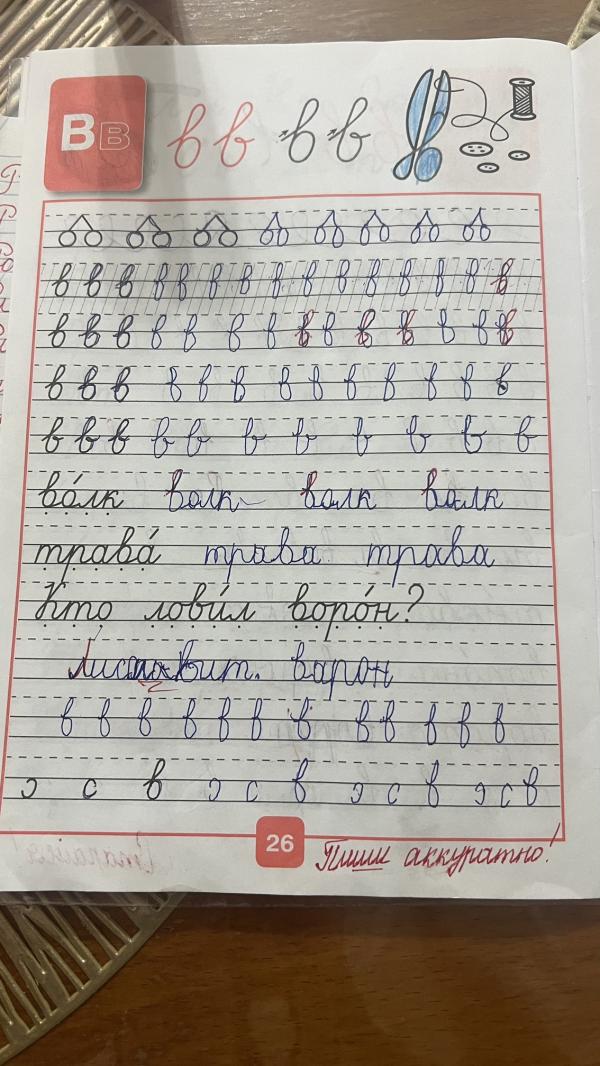 В В в в в в
в в в в в в в в в в в в в в в
в в в в в в в в в в в в в в
в в в в в в в в в в в в в
в в в в в в в в в в в
во́лк волк волк волк
трава́ трава трава
Кто лови́л воро́н?
варон
в в в в в в в в в в в в
ɔ с в ɔ с в ɔ с в ɔ с в
26 Пиши аккуратно!